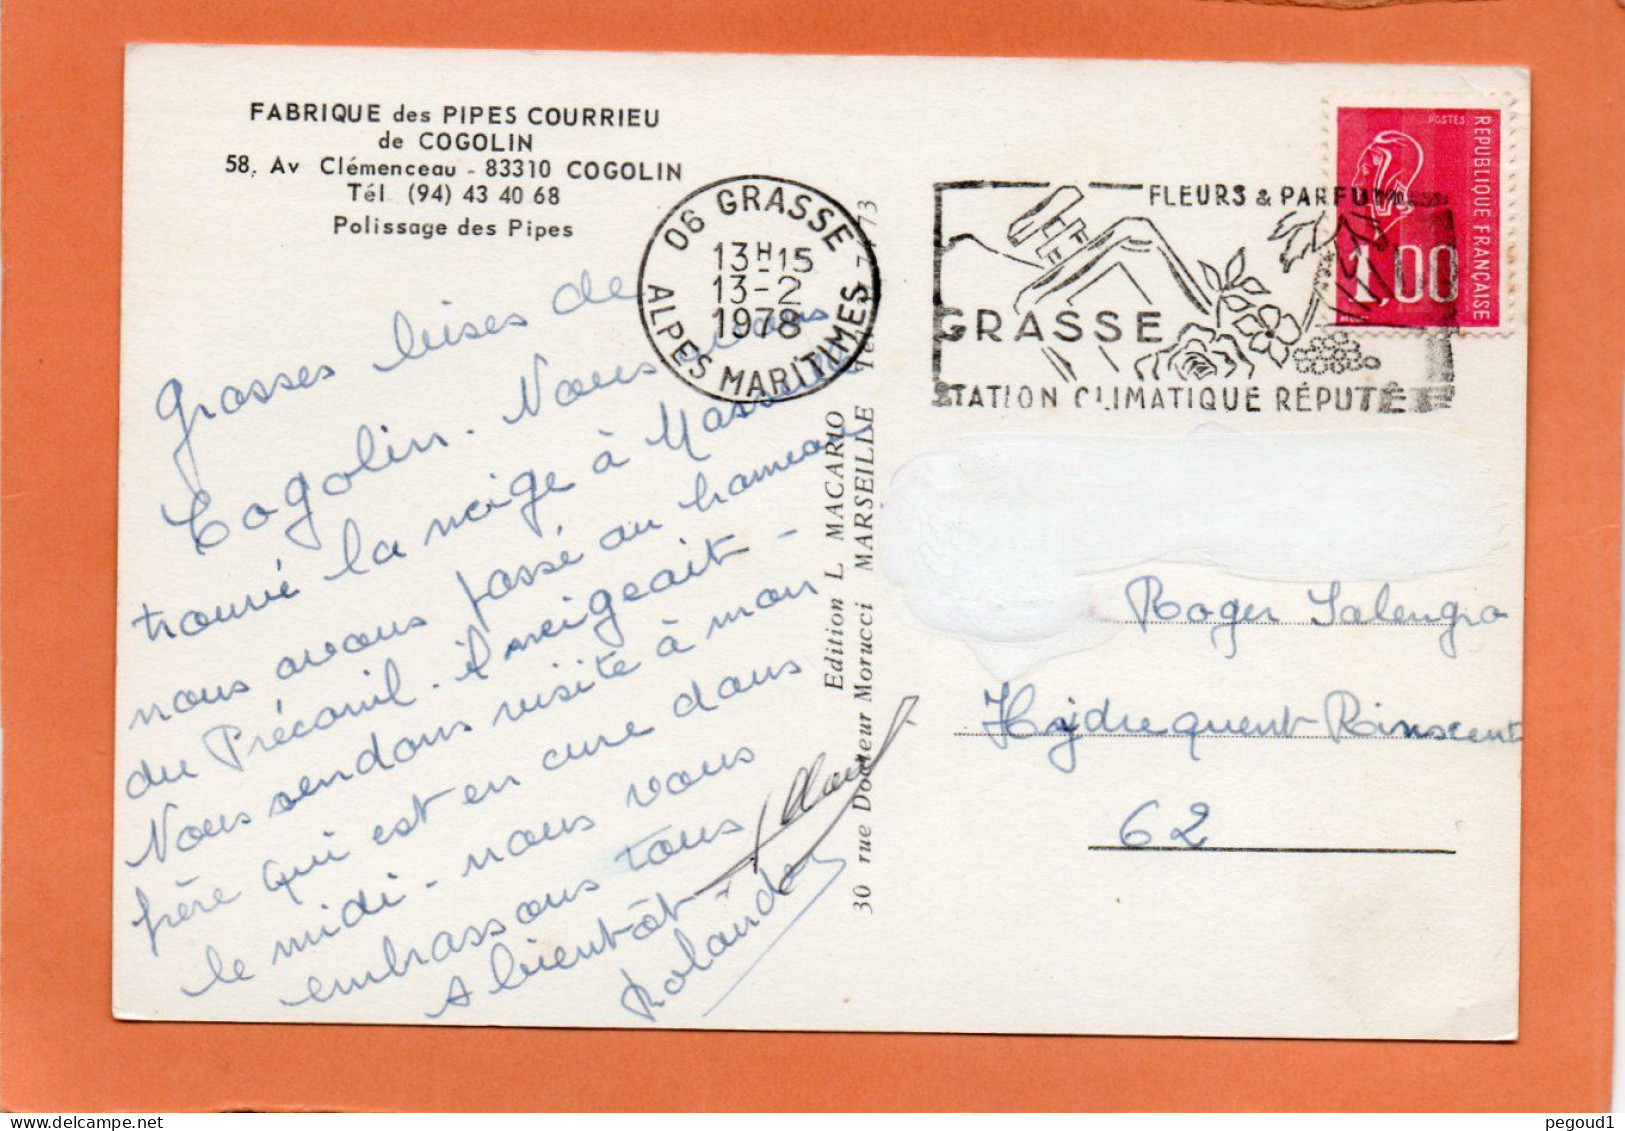 FABRIQUE des PIPES COURRIEU
de COGOLIN
58, Av Clémenceau - 83310 COGOLIN
Tél. (94) 43 40 68
Polissage des Pipes
Grosses bises de
Cogolin. Nous avons
trouvé la neige à
nous avons passé au hameau
du Préconil. il neigeait -
Nous rendons visite à mon
frère qui est en cure dans
le midi - nous vous
embrassons tous
A bientôt -
Rolande
06 GRASSE
13H15
13-2
1978
ALPES MARITIMES
FLEURS & PARFUMS
GRASSE
STATION CLIMATIQUE RÉPUTÉE
POSTES
REPUBLIQUE FRANÇAISE
1,00
Edition L MACARIO
30 rue Docteur Morucci MARSEILLE
Roger Salengro
Hydrequent Rinxent
62
pegoud1